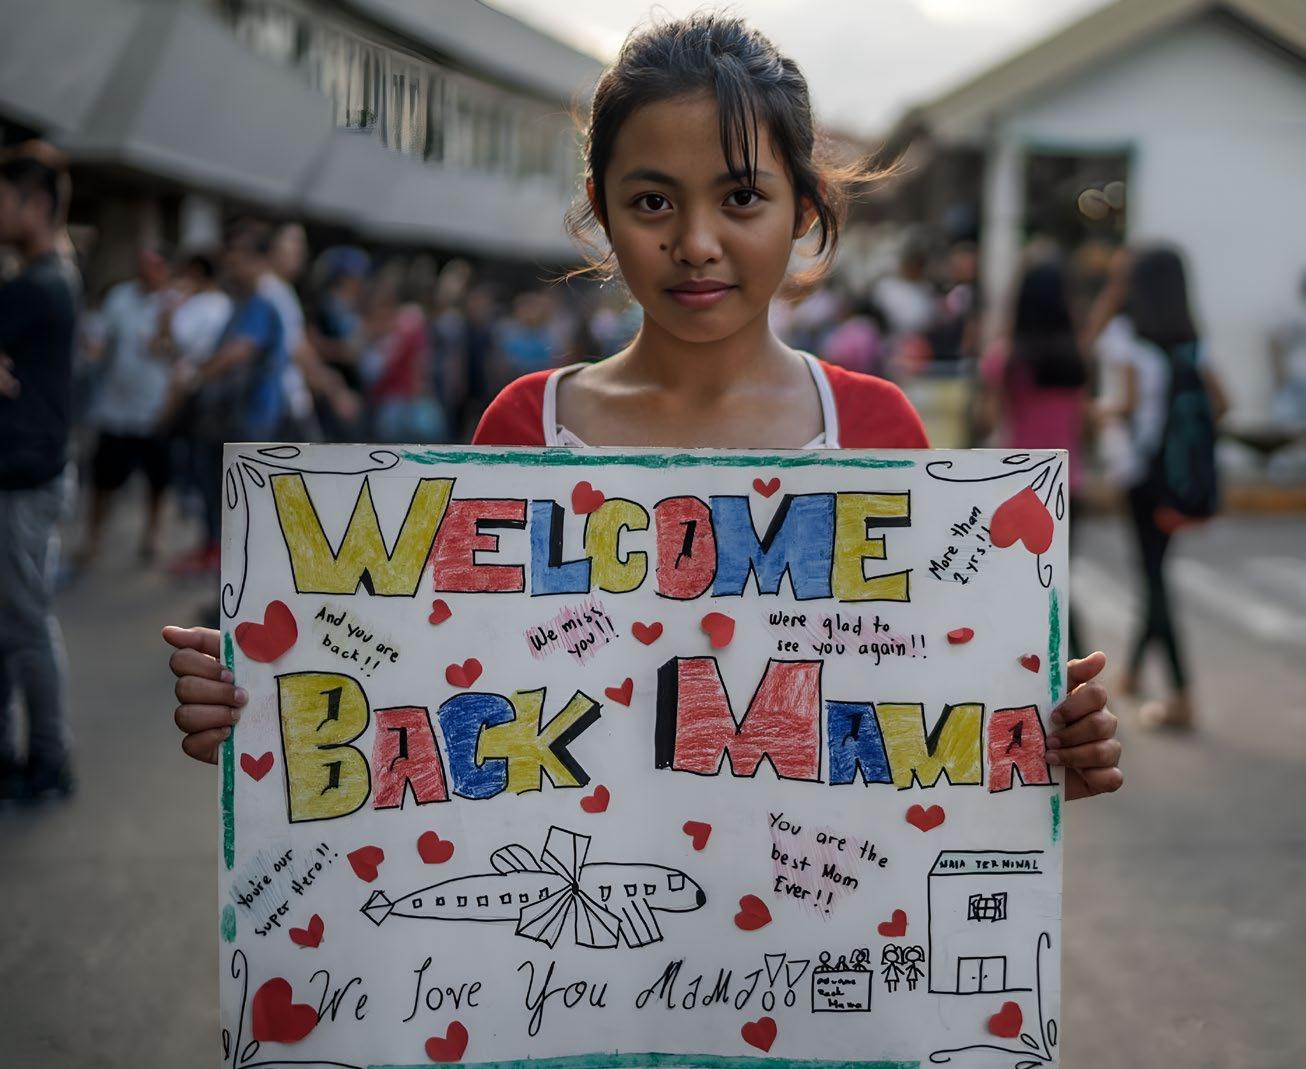 WELCOME
More than
2 yrs.!!
And you are
back!!
We miss
you!!
Were glad to
see you again!!
BACK MAMA
You're our
super Hero!!
You are the
best Mom
Ever!!
NAIA TERMINAL
We love You MAMA!!
Back
Mama